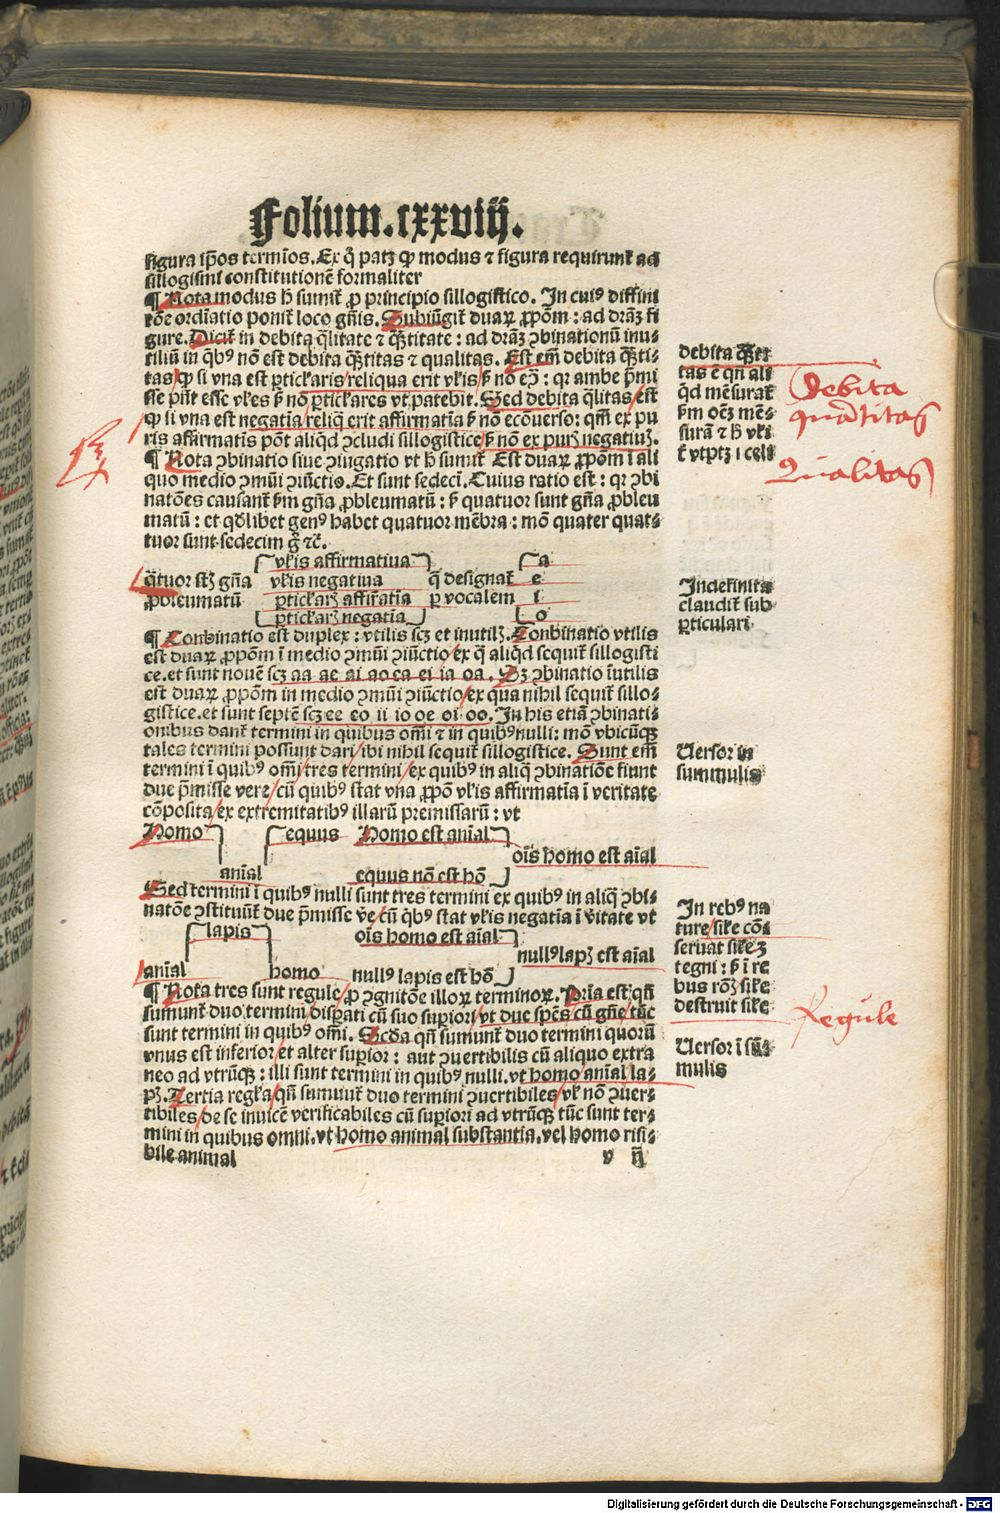 Folium. cxxviij.
figura ip̄os termīos. Ex q̄ patꝫ ꝙ modus ⁊ figura requirunt᷑ ad
sillogismi constitutionē formaliter
¶ Nota modus h̄ sumit᷑ ꝓ principio sillogistico. In cuiꝰ diffini
tōe ordīatio ponit᷑ loco gn̄is. Subiūgit᷑ duaꝝ ꝓpōm : ad dr̄az fi
gure. Dicit᷑ in debita q̄litate ⁊ q̄titate : ad dr̄az ꝯbinationū inu⸗
tiliū in qͥbꝰ nō est debita q̄titas ⁊ qualitas. Est em̄ debita q̄ti⸗
tas/ꝙ si vna est ꝑticƚaris/reliqua erit vƚis/ƀ nō eꝯ̄ : qꝛ ambe p̄mi
sse pn̄t esse vƚes ƀ nō ꝑticƚares vt patebit. Sed debita q̄litas/est
ꝙ si vna est negatia/reliq̄ erit affirmatīa ƀ nō ecōuerso: qm̄ ex pu
ris affirmatīs pōt aliqd̄ ꝯcludi sillogistice/ƀ nō ex purꝭ negatiuꝭ.
¶ Nota ꝯbinatio siue ꝯiugatio vt h̄ sumit᷑ Est duaꝝ ꝓpōm ī ali
quo medio ꝯmūi ꝯiūctio. Et sunt sedecī. Cuius ratio est : qꝛ ꝯbi
natōes causant᷑ ƀm gn̄a ꝓbleumatū : ƀ quatuor sunt gn̄a ꝓbleu
matū : et qd̄libet genꝰ habet quatuor mēbra : mō quater quat⸗
tuor sunt sedecim ḡ ⁊c̄.
vƚis affirmatiua a
q̄tuor sꝫ gn̄a vƚis negatiua q̄ designat᷑ e
ꝓbleumatū ꝑticƚarꝭ affirmatīa ꝑ vocalem i
ꝑticƚarꝭ negatīa o
¶ Conbinatio est duplex : vtilis scꝫ et inutilꝭ. Conbinatio vtilis
est duaꝝ ꝓpōm ī medio ꝯmūi ꝯiūctio/ex q̄ aliqd̄ sequit᷑ sillogisti
ce. et sunt nouē scꝫ aa ae ai ao ea ei ia oa. Sꝫ ꝯbinatio īutilis
est duaꝝ ꝓpōm in medio ꝯmūi ꝯiūctio/ex qua nihil sequit᷑ sillo⸗
gistice. et sunt septē scꝫ ee eo ii io oe oi oo. In his etiā ꝯbinati⸗
onibus dant᷑ termini in quibus om̄i ⁊ in quibꝰ nulli: mō vbicūqꝫ
tales termini possunt dari/ibi nihil sequit᷑ sillogistice. Sunt em̄
termini ī quibꝰ om̄i/tres termini/ex quibꝰ in aliq̄ ꝯbinatiōe fiunt
due p̄misse vere/cū quibꝰ stat vna ꝓpō vƚis affirmatīa ī veritate
cōposita/ex extremitatibꝰ illarū premissarū : vt
Homo equus Homo est anīal
oīs homo est aīal
anīal equus nō est hō
Sed termini ī quibꝰ nulli sunt tres termini ex quibꝰ in aliq̄ ꝯbi⸗
natōe ꝯstituūt᷑ due p̄misse v̄e/cū qͥbꝰ stat vƚis negatīa ī v̄itate vt
lapis oīs homo est aīal
nullꝰ lapꝭ est aīal
anīal homo nullꝰ lapis est hō
¶ Nota tres sunt regule/ꝓ ꝯgnitōe illoꝝ terminoꝝ. Prīa est/qn̄
sumunt᷑ duo termini/disꝑati cū suo suꝑiori/vt due spēs/cū gn̄e/tūc
sunt termini in quibꝰ om̄i. Scd̄a qn̄ sumunt᷑ duo termini quorū
vnus est inferior/et alter suꝑior : aut ꝯuertibilis cū aliquo extra
neo ad vtrūqꝫ : illi sunt termini in quibꝰ nulli. vt homo/anīal/la⸗
pꝭ. Tertia regƚa/qn̄ sumunt᷑ duo termini ꝯuertibiles/vƚ nō ꝯuer⸗
tibiles/de se inuicē verificabiles cū suꝑiori ad vtrūqꝫ tūc sunt ter⸗
mini in quibus omni. vt homo animal substantia. vel homo risi⸗
bile animal
v ij
debita q̄ti
tas ē qn̄ ali
qd̄ mēsurat᷑
ƀm oēꝫ mē⸗
surā ⁊ h̄ vƚi
Debita
quātitas
Qualitas
Indefinita
claudit᷑ sub
ꝑticulari
Versor in
summulis
In rebꝰ na
ture/siƚe cō⸗
seruat siƚe ꝫ
tegni : ƀ ī re
bus rōꝫ siƚe
destruit siƚe
Regule
Versor ī sū⸗
mulis